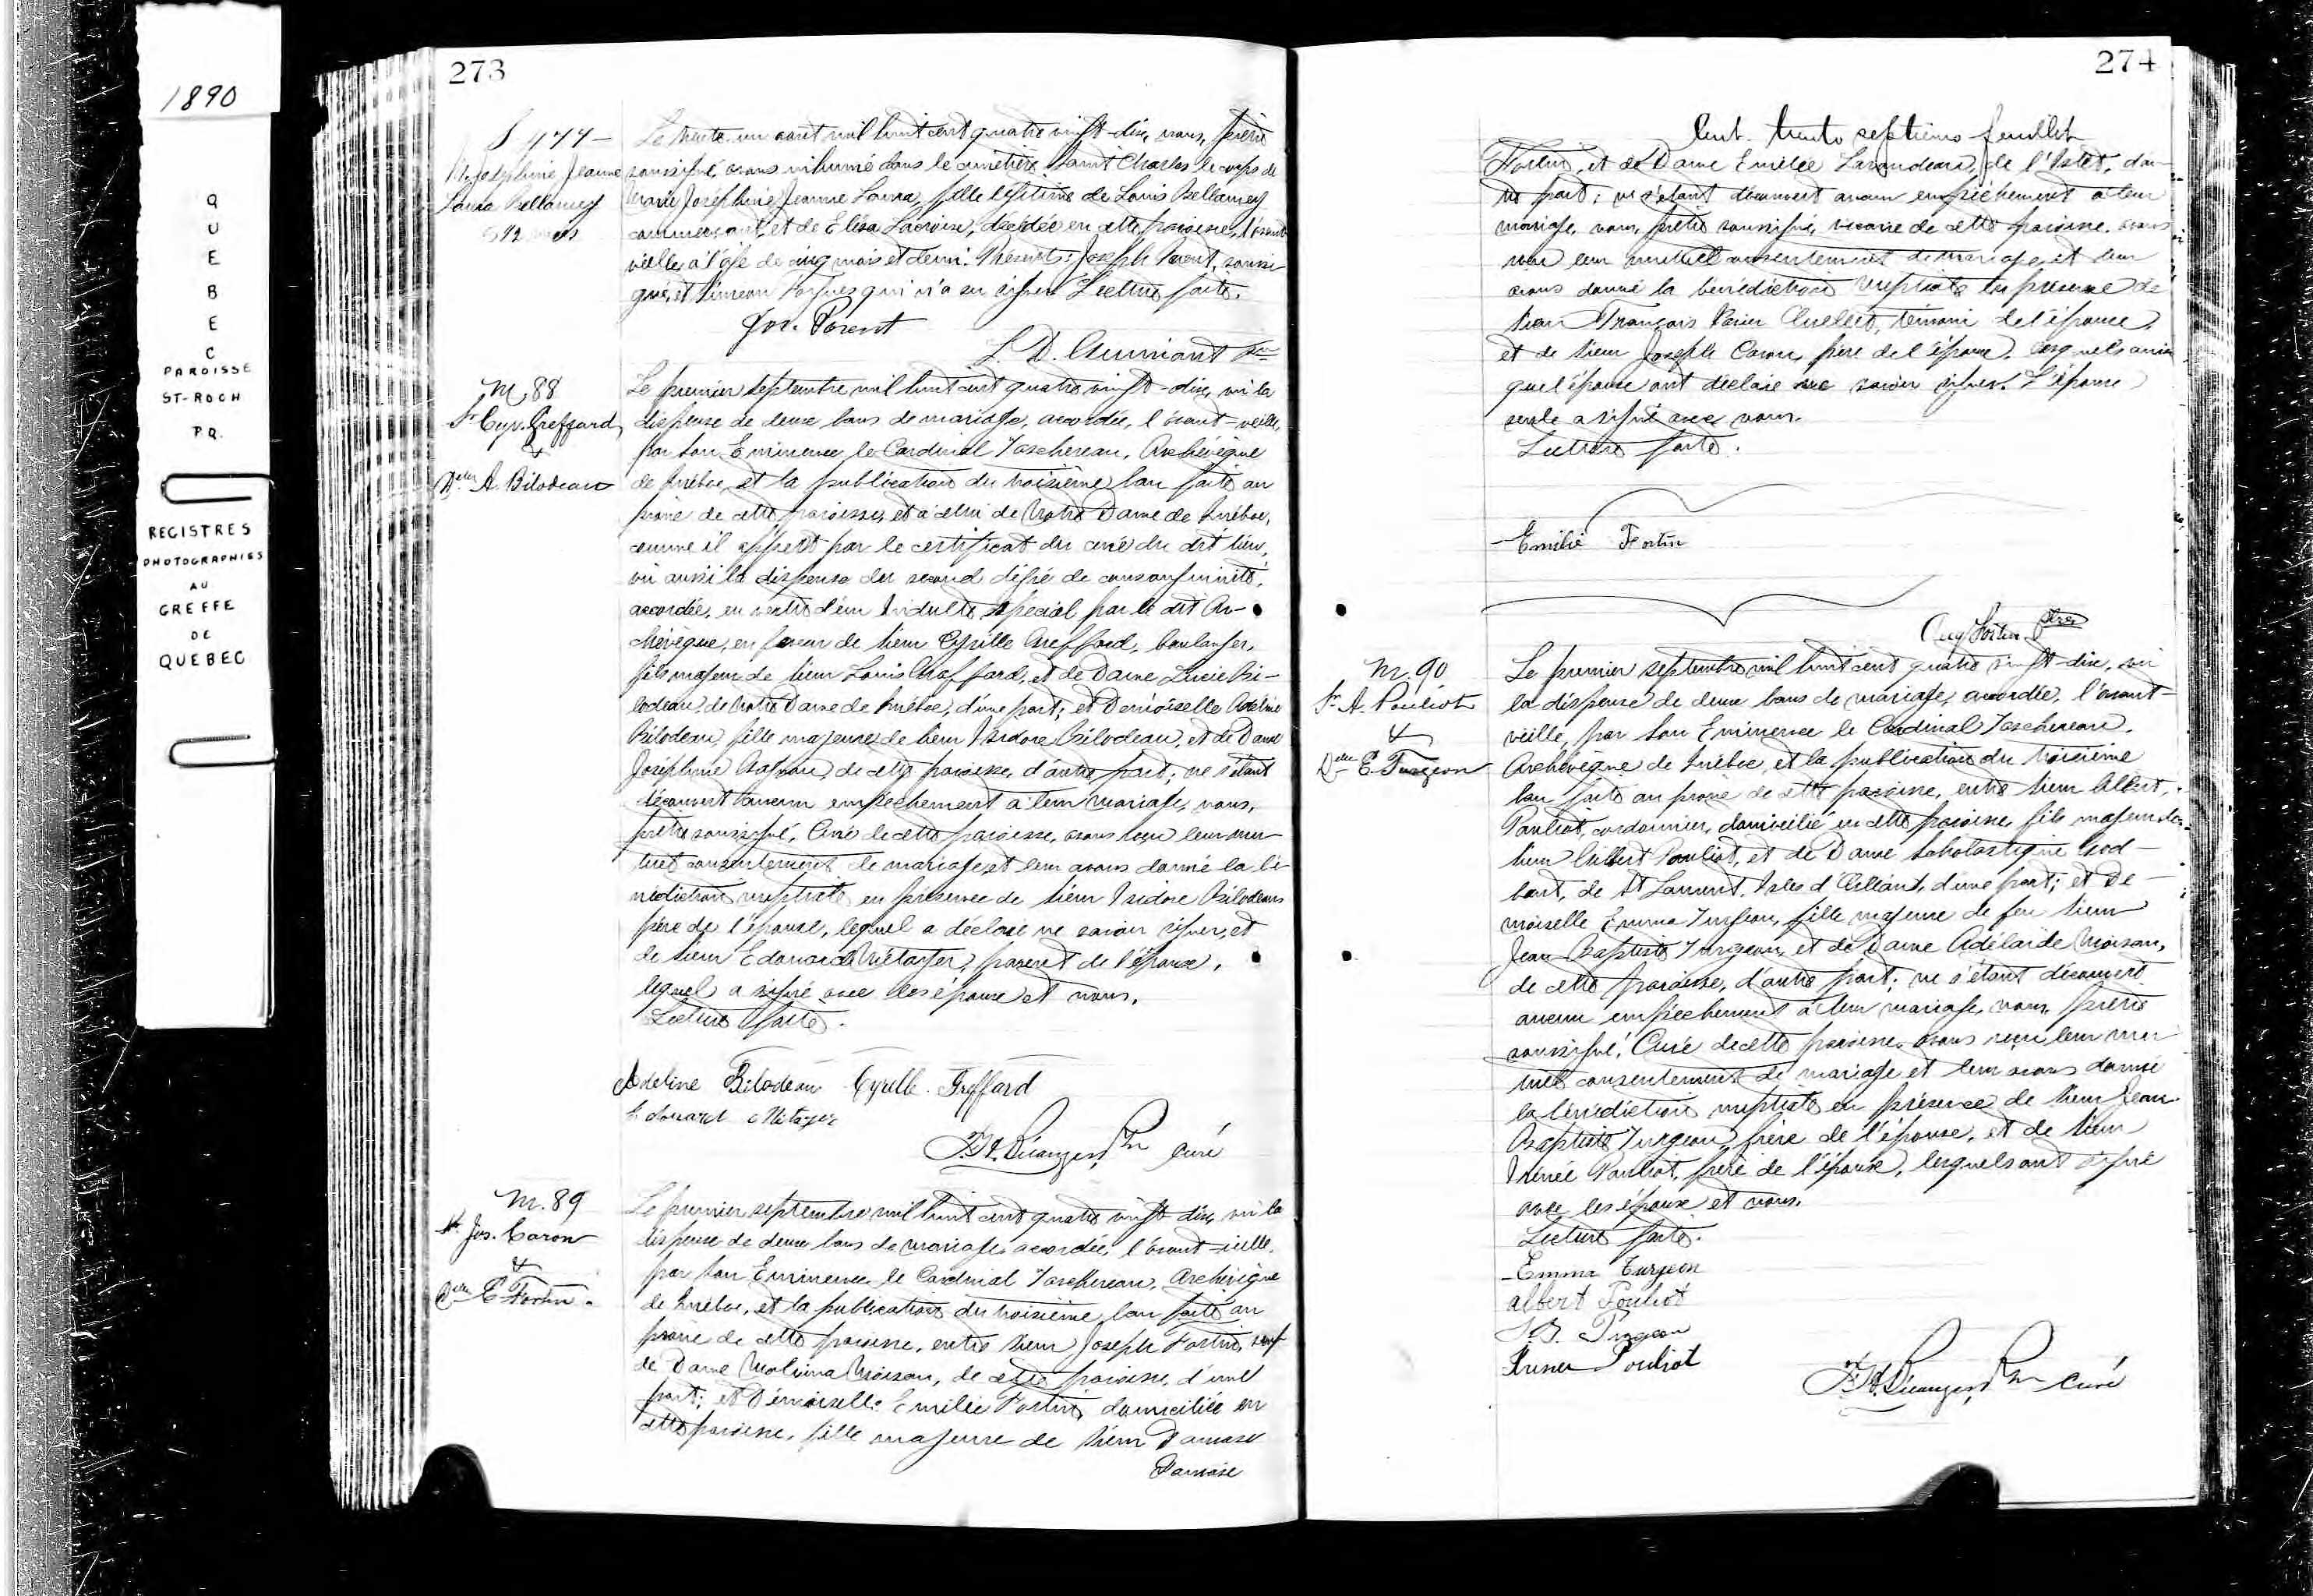 1890
QUEBEC
PAROISSE
ST-ROCH
P.Q.
REGISTRES
PHOTOGRAPHIES
AU
GREFFE
DE
QUEBEC
273
S 477
M. Joséphine Jeanne
Laura Bellamey
5 1/2 mois
Le trente un août mil huit cent quatre vingt-dix, nous, prêtre
soussigné, avons inhumé dans le cimetière Saint Charles le corps de
Marie Joséphine Jeanne Laura, fille légitime de Louis Bellamey
commerçant, et de Eliza Lacroix, décédée en cette paroisse, l'avant
veille, à l'âge de cinq mois et demi. Présents: Joseph Parent, soussi-
gné, et Siméon qui n'a su signer. Lecture faite.
Jos. Parent
L. D. Ptre
M. 88
Sr Cyr. Greffard
&
Delle A. Bilodeau
Le premier septembre mil huit cent quatre vingt-dix, vu la
dispense de deux bans de mariage, accordée, l'avant-veille,
par Son Eminence le Cardinal Taschereau, Archevêque
de Québec, et la publication du troisième ban faite au
prône de cette paroisse, et à celui de Notre Dame de Québec,
comme il appert par le certificat du curé du dit lieu,
vu aussi la dispense du second dégré de consanguinité,
accordée, en vertu d'un Indulte spécial par le dit Ar-
chevêque, en faveur de Sieur Cyrille Greffard, boulanger,
fils majeur de Sieur Louis Greffard, et de Dame Lucie Bi-
lodeau, de Notre Dame de Québec, d'une part; et Demoiselle Adéline
Bilodeau, fille majeure de Sieur Isidore Bilodeau, et de Dame
Joséphine de cette paroisse, d'autre part; ne s'étant
découvert aucun empêchement à leur mariage, nous,
prêtre soussigné, Curé de cette paroisse, avons reçu leur mu-
tuel consentement de mariage et leur avons donné la bé-
nédiction nuptiale en présence de Sieur Isidore Bilodeau
père de l'épouse, lequel a déclaré ne savoir signer, et
de Sieur Edouard Métayer, parent de l'épouse,
lequel a signé avec les époux et nous.
Lecture faite.
Adeline Bilodeau Cyrille Greffard
Edouard Métayer
F. H. Bélanger, Ptre Curé
M. 89
Sr Jos. Caron
&
Delle E. Fortin
Le premier septembre mil huit cent quatre vingt-dix, vu la
dispense de deux bans de mariage, accordée, l'avant-veille,
par Son Eminence le Cardinal Taschereau, Archevêque
de Québec, et la publication du troisième ban faite au
prône de cette paroisse, entre Sieur Joseph Fortin, veuf
de Dame Moisan, de cette paroisse, d'une
part; et Demoiselle Emilie Fortin, domiciliée en
cette paroisse, fille majeure de Sieur Damase
Damase
274
Cent-trente septième feuillet
Fortin, et de Dame Emélie de l'Islet, d'au-
tre part; ne s'étant découvert aucun empêchement à leur
mariage, nous, prêtre soussigné, vicaire de cette paroisse, avons
reçu leur mutuel consentement de mariage, et leur
avons donné la bénédiction nuptiale en présence de
Sieur François Ouellet, témoin de l'épouse,
et de Sieur Joseph Caron, père de l'époux, lesquels ainsi
que l'époux ont déclaré ne savoir signer. L'épouse
seule a signé avec nous.
Lecture faite.
Emilie Fortin
Aug Fortin Ptre
M. 90
Sr A. Pouliot
&
Delle E. Turgeon
Le premier septembre mil huit cent quatre vingt-dix, vu
la dispense de deux bans de mariage, accordée, l'avant-
veille, par Son Eminence le Cardinal Taschereau,
Archevêque de Québec, et la publication du troisième
ban faite au prône de cette paroisse, entre Sieur Albert
Pouliot, cordonnier, domicilié en cette paroisse, fils majeur de
Sieur Pouliot, et de Dame Scholastique God-
bout, de St Laurent, Isles d'Orléans, d'une part; et De-
moiselle Emma Turgeon, fille majeure de feu Sieur
Jean Baptiste Turgeon, et de Dame Adélaïde Moisan,
de cette paroisse, d'autre part; ne s'étant découvert
aucun empêchement à leur mariage, nous, prêtre
soussigné, Curé de cette paroisse, avons reçu leur mu-
tuel consentement de mariage et leur avons donné
la bénédiction nuptiale en présence de Sieur Jean-
Baptiste Turgeon, frère de l'épouse, et de Sieur
Irénée Pouliot, frère de l'époux, lesquels ont signé
avec les époux et nous.
Lecture faite.
Emma Turgeon
albert Pouliot
J. B. Turgeon
Pouliot
F. H. Bélanger, Ptre Curé